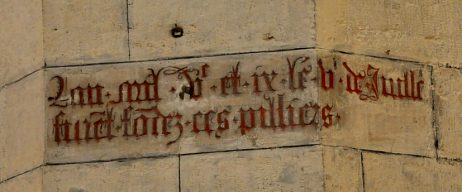 Lan · mil · Vᶜ · et · ix · le · v · de Juille
furēt · fōdez · ces · pilliers ·